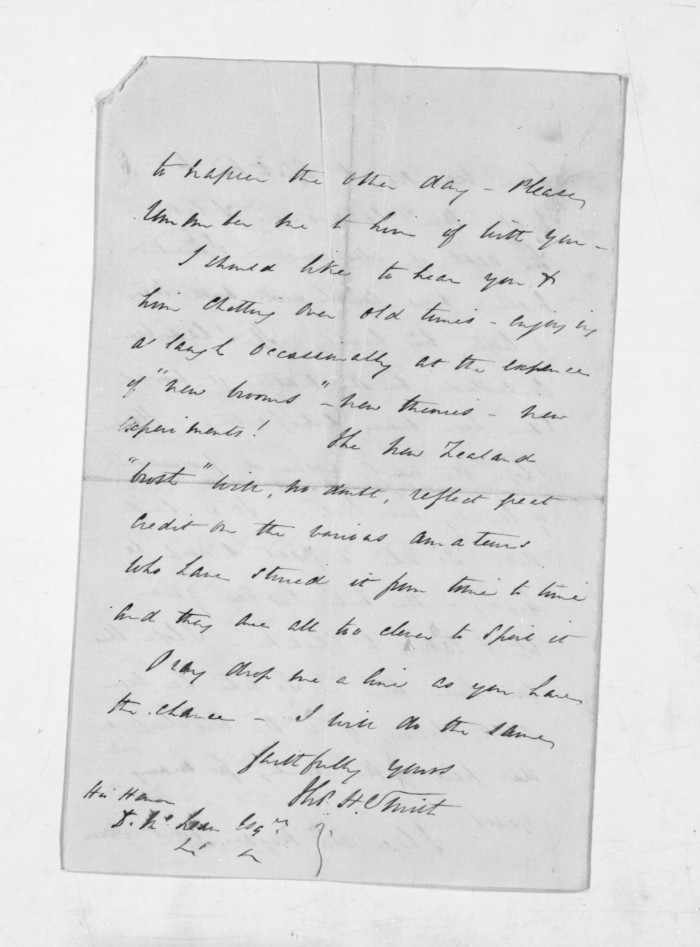 to Napier the other day - Please
remember me to him if with you -
I should like to hear you &
him chatting over old times - enjoying
a laugh occassionally at the expence
of "new brooms" - new theories - new
experiments! The New Zealand
"broth" will, no doubt, reflect great
credit on the various amateurs
who have stirred it from time to time
and they are all too clever to spoil it
Pray drop me a line as you have
the chance - I will do the same
faithfully yours
Thos. H. Smith
His Honor
D. McLean Esqre